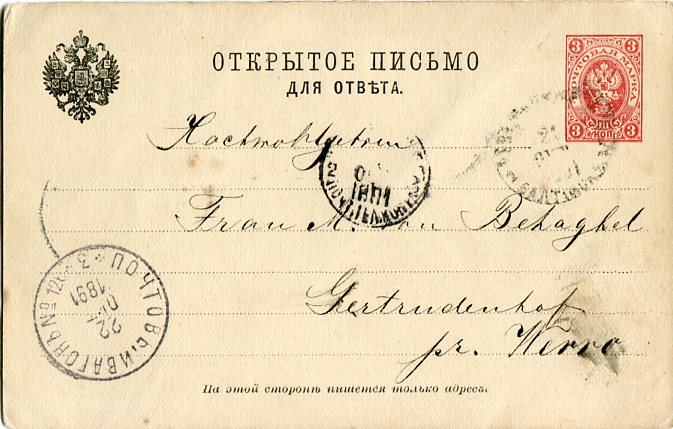 ОТКРЫТОЕ ПИСЬМО
ДЛЯ ОТВѢТА.
3 ПОЧТОВАЯ МАРКА 3
3 КОП. 3
Hochwohlgeboren
Frau M. von Behaghel
Gertrudenhof
pr. Werro
ПОЧТОВЫЙ ВАГОНЪ № 126 3
22
1891
1891
На этой сторонѣ пишется только адресъ.